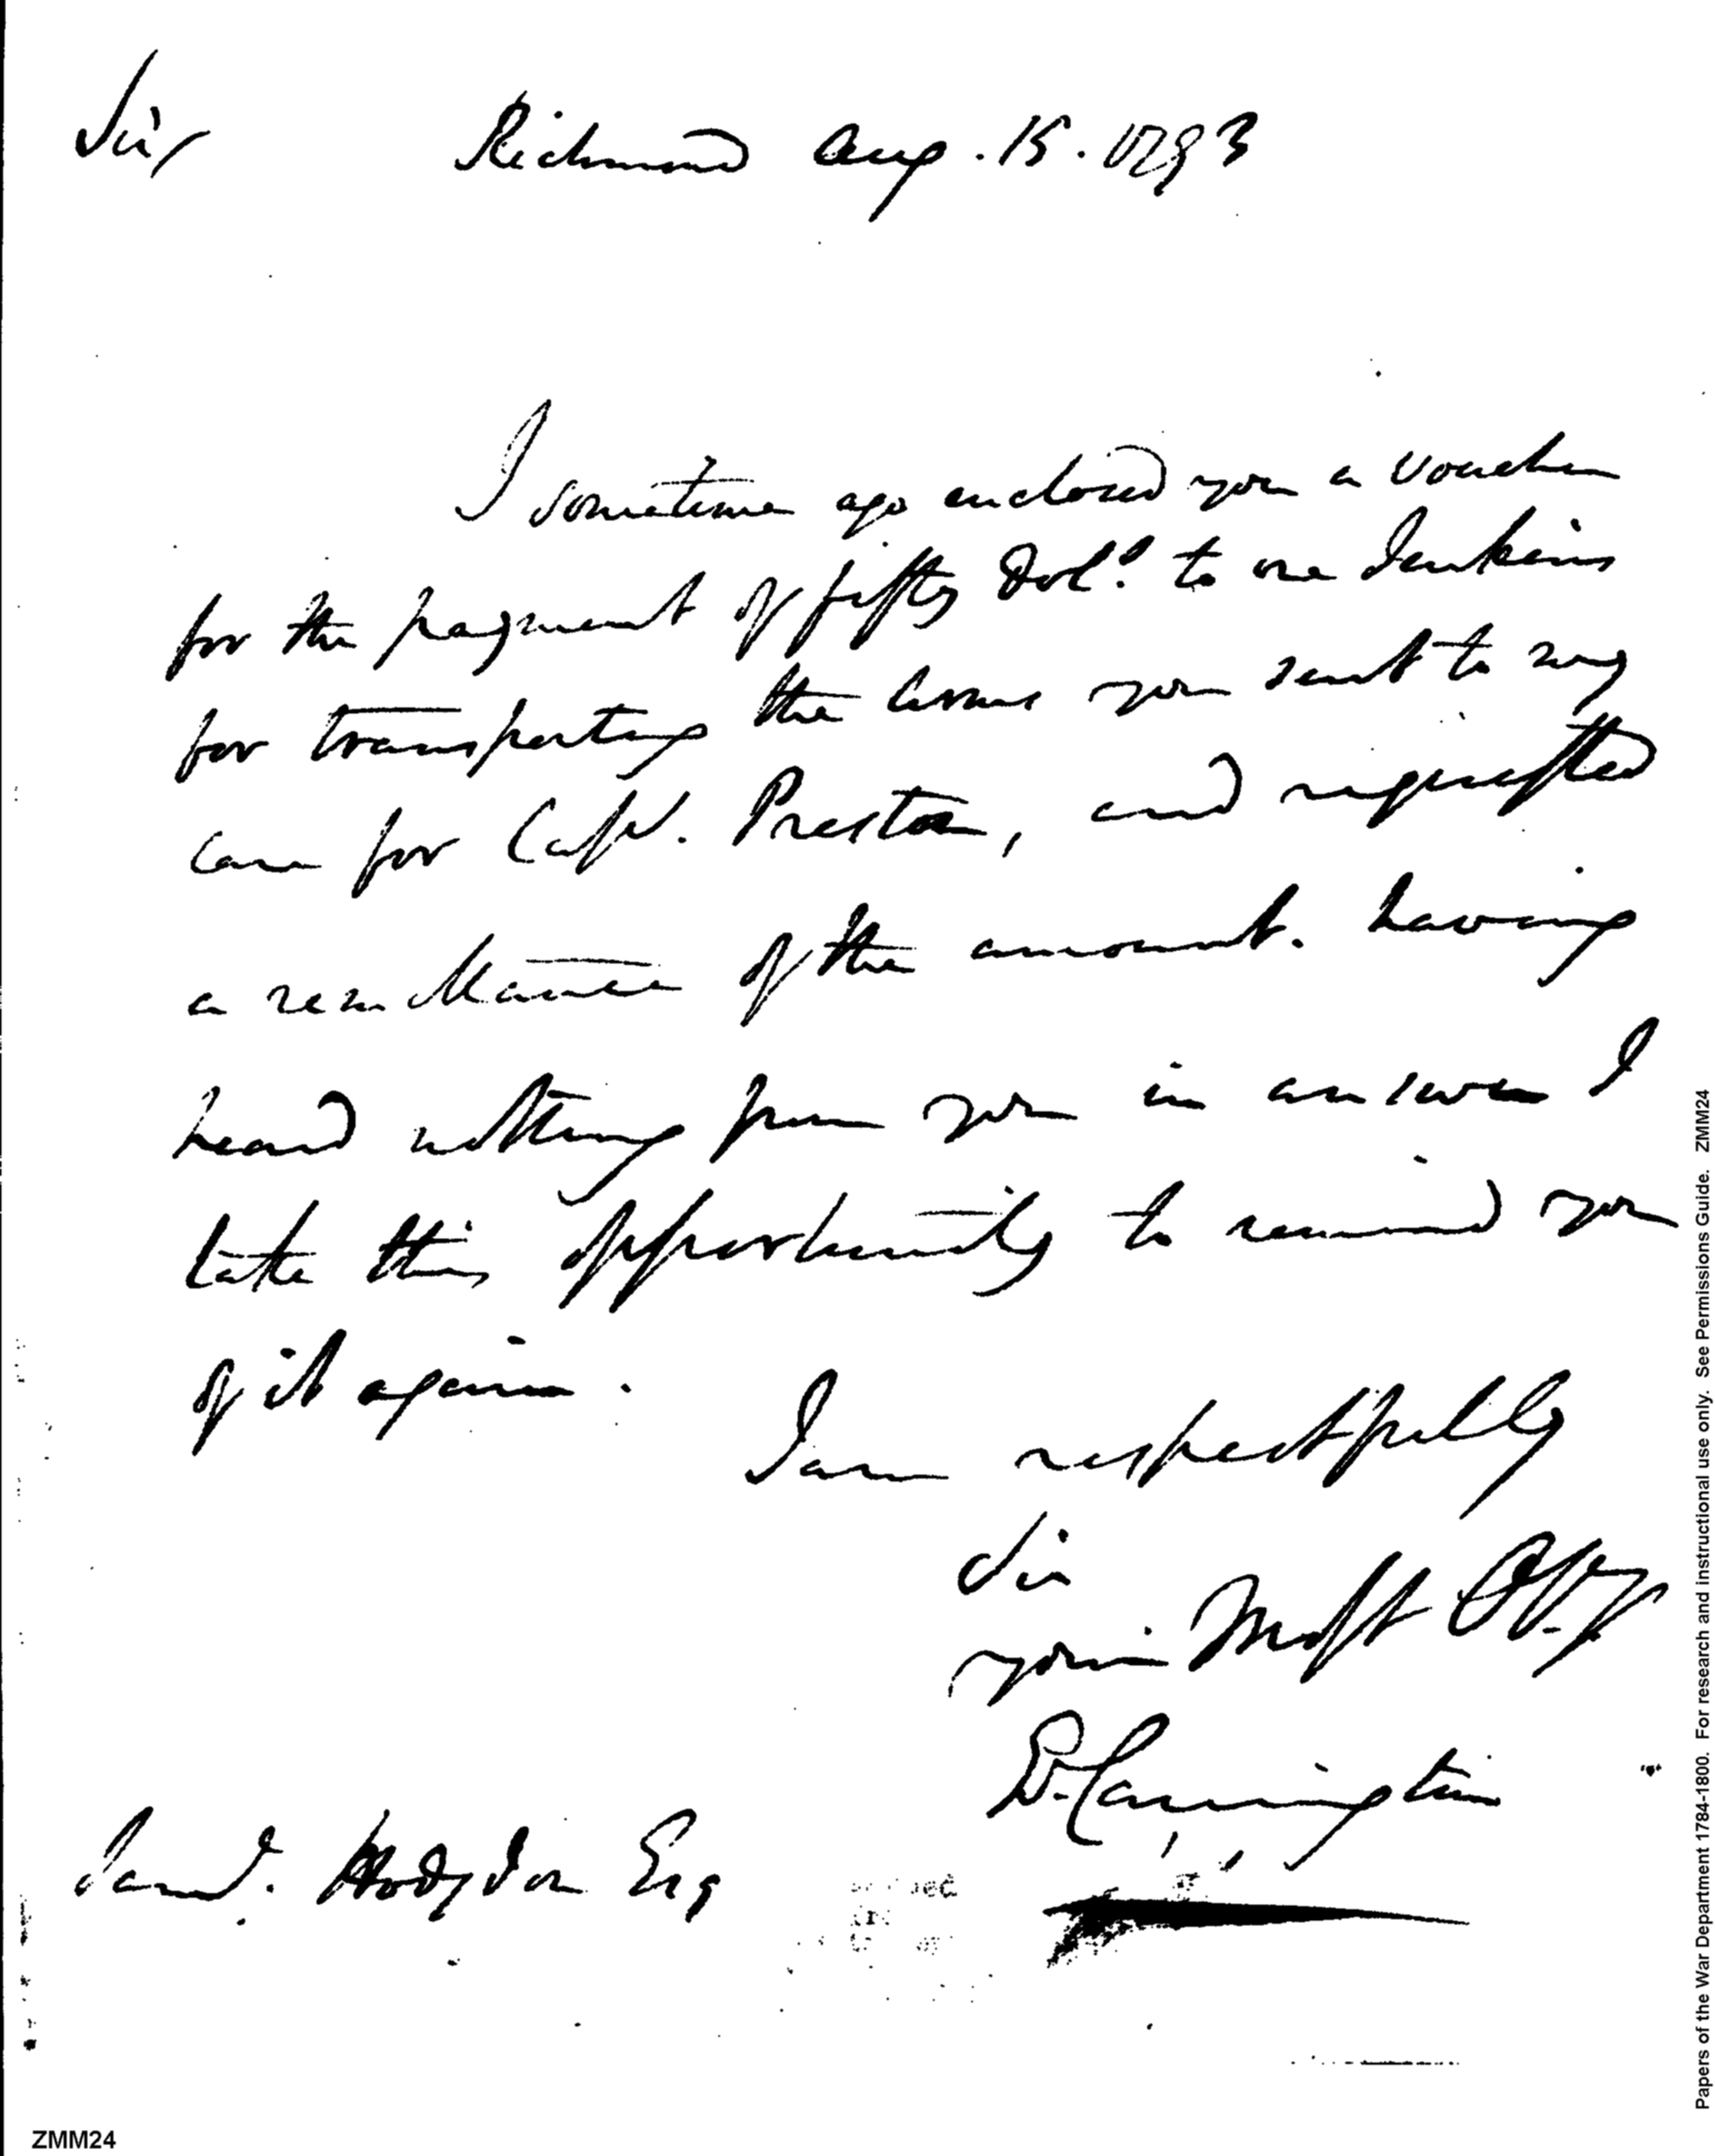 Sir Richmond Aug. 15. 1793
I sometime ago enclosed you a voucher
for the payment of fifty Dols. to one Jenkins
for transporting the arms you sent to my
care for Capt. Preston, and requested
a remittance of the amount. having
heard nothing from you in answer I
take this opportunity to remind you
of it again.
I am respectfully
Sir
your Most Ob. S
E. Carrington
Saml. Hodgdon Esq
ZMM24
Papers of the War Department 1784-1800. For research and instructional use only. See Permissions Guide. ZMM24